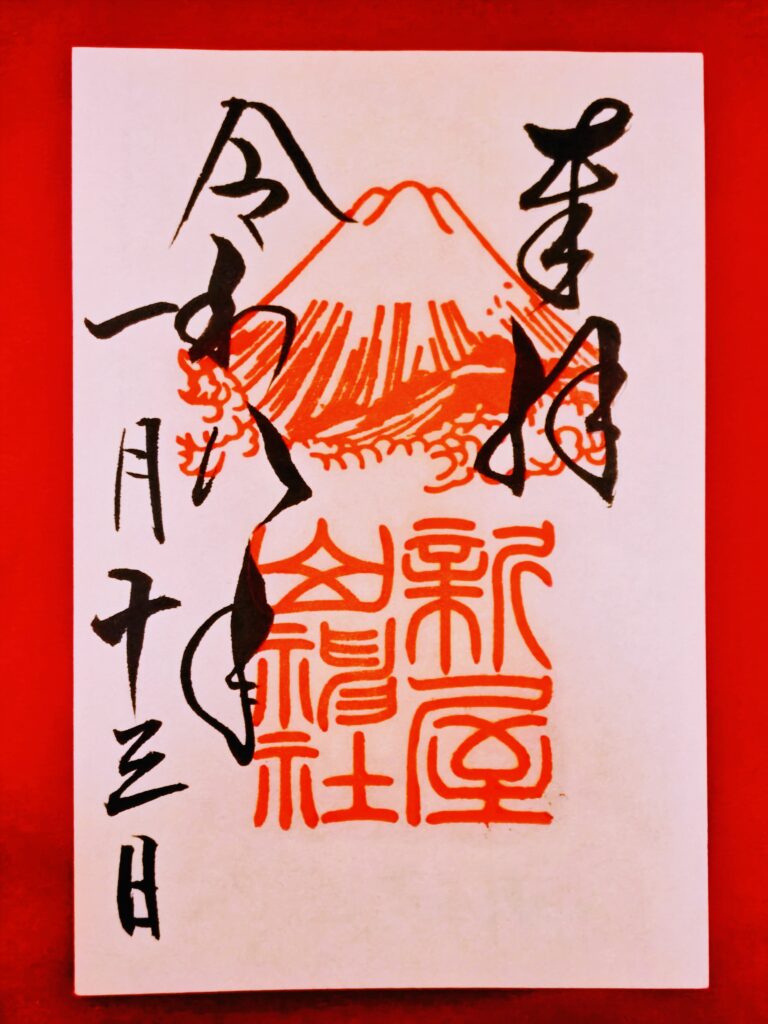 奉拝
新屋
山神社
令和八年
一月十三日